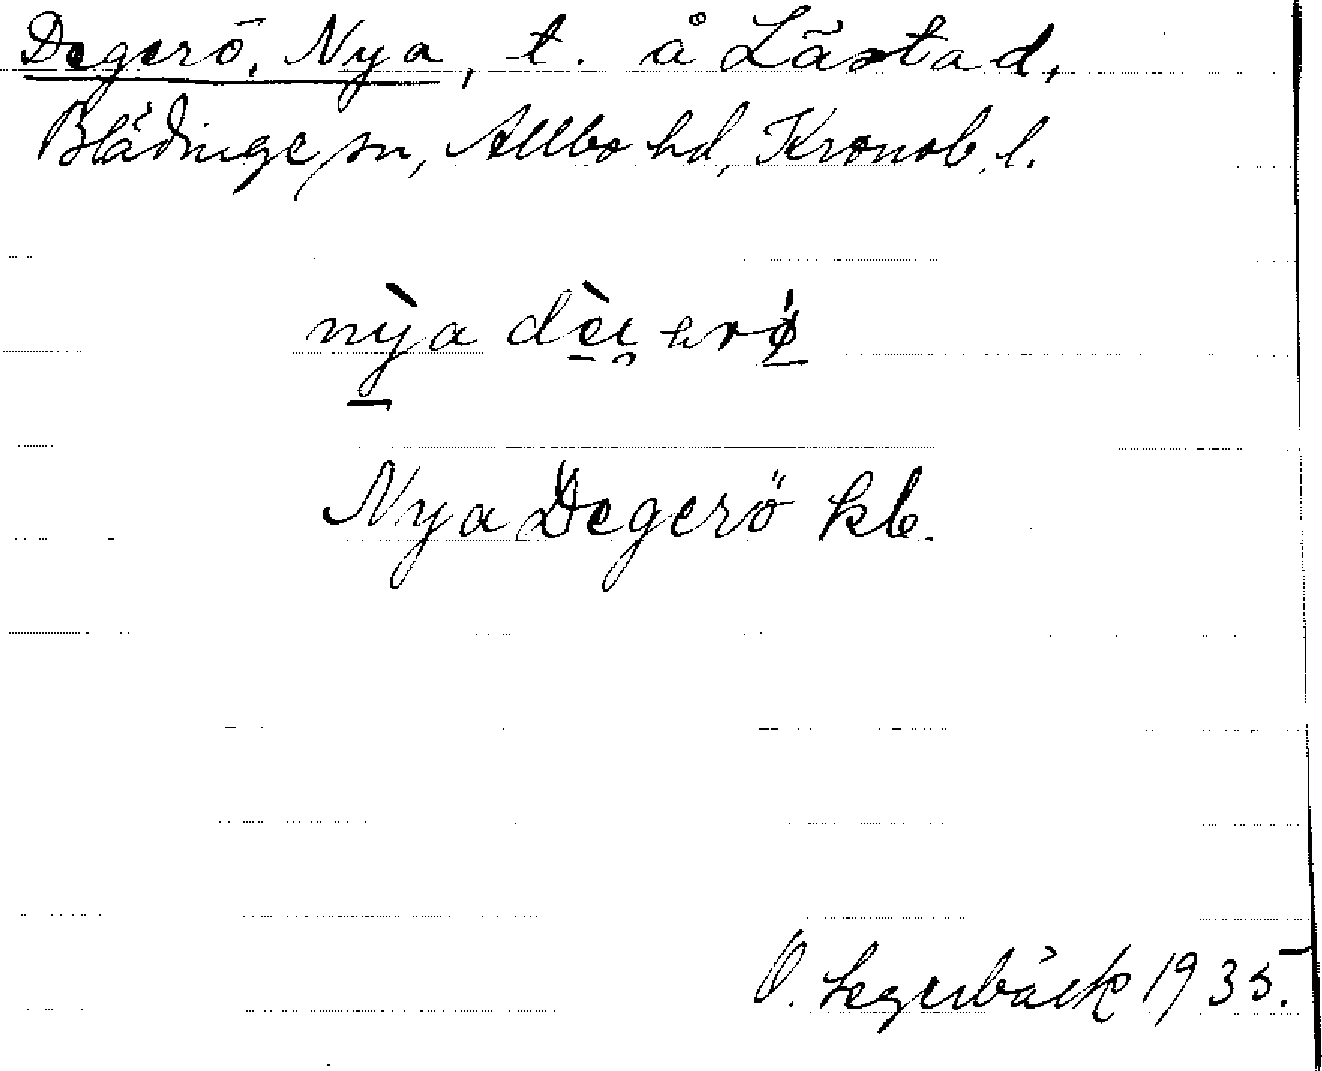 Degerö, Nya, t. å Lästad,
Blädinge sn, Allbo hd, Kronob. l.
nỳa
Nya Degerö kb.
O. Legerbäck 1935.